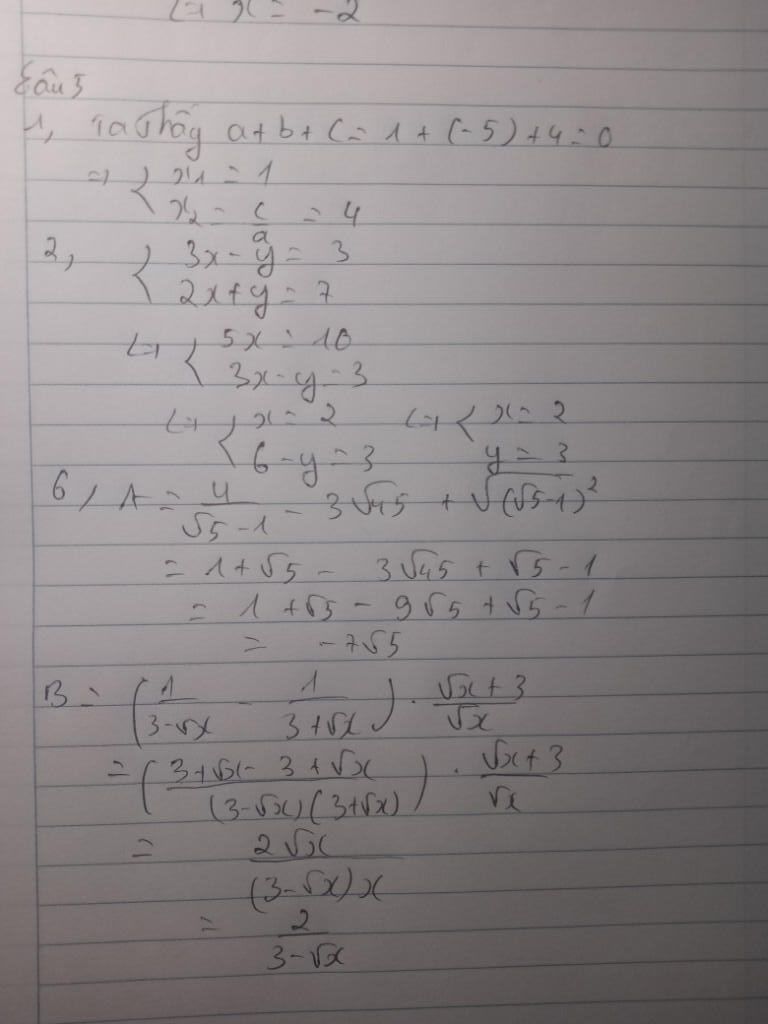 ⇔ x = -2
Câu 5
1, Ta thấy a + b + c = 1 + (-5) + 4 = 0
⇒ { x₁ = 1
x₂ = c/a = 4
2, { 3x - y = 3
2x + y = 7
⇔ { 5x = 10
3x - y = 3
⇔ { x = 2 ⇔ { x = 2
6 - y = 3 y = 3
6, A = 4/(√5 - 1) - 3√45 + √(√5-1)²
= 1 + √5 - 3√45 + √5 - 1
= 1 + √5 - 9√5 + √5 - 1
= -7√5
B = (1/(3-√x) - 1/(3+√x)) . (√x + 3)/√x
= ((3+√x - 3 + √x)/((3-√x)(3+√x))) . (√x + 3)/√x
= 2√x/((3-√x)x)
= 2/(3-√x)